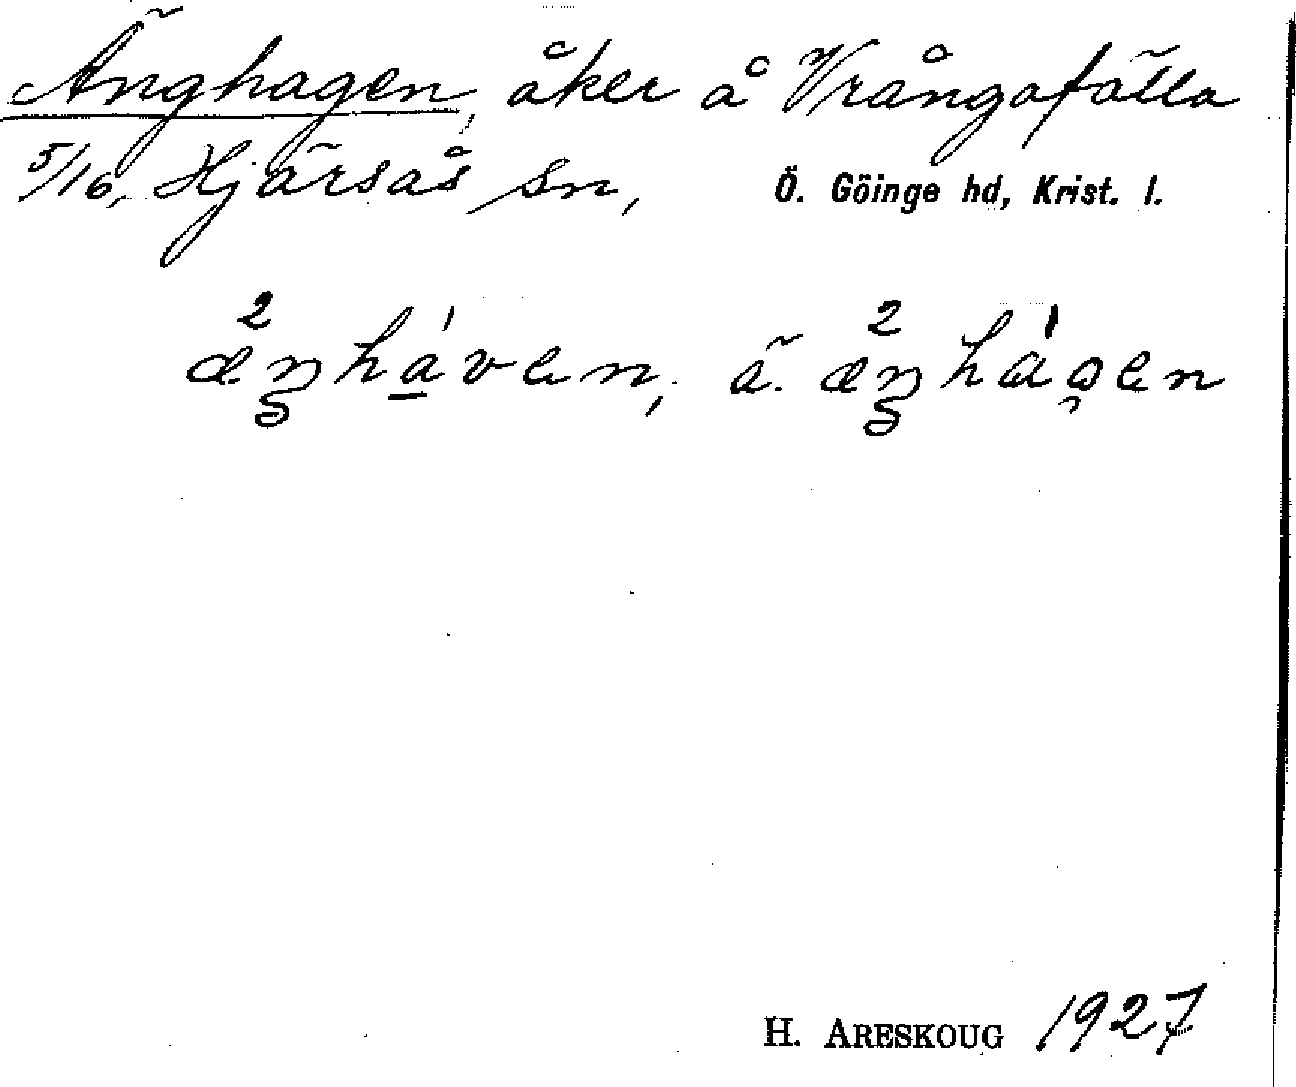 Änghagen, åker å Vrångafälla
5/16, Hjärsås sn, Ö. Göinge hd, Krist. l.
H. ARESKOUG 1927